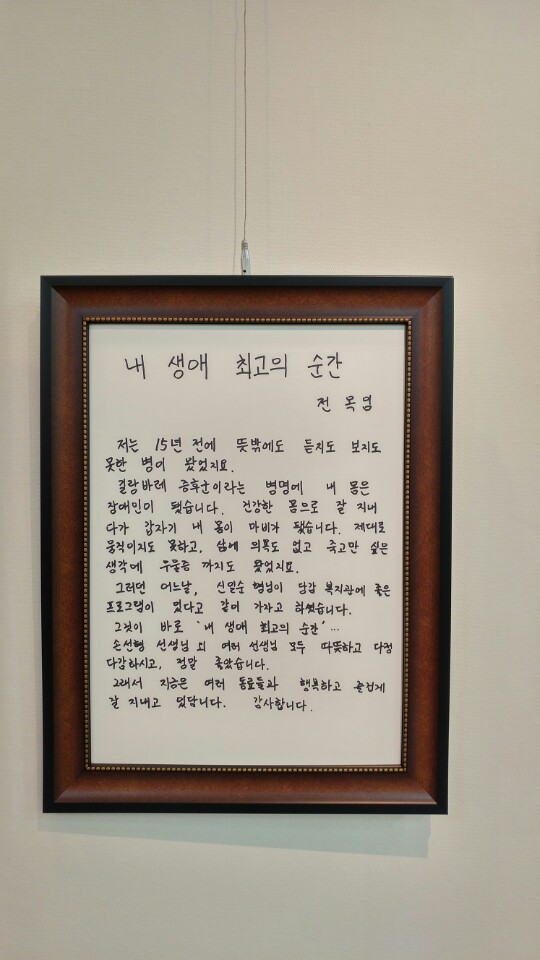 내 생애 최고의 순간
전 옥엽
저는 15년 전에 뜻밖에도 듣지도 보지도
못한 병이 왔었지요.
길랑바레 증후군이라는 병명에 내 몸은
장애인이 됐습니다. 건강한 몸으로 잘 지내
다가 갑자기 내 몸이 마비가 됐습니다. 제대로
움직이지도 못하고, 삶에 의욕도 없고 죽고만 싶은
생각에 우울증 까지도 왔었지요.
그러던 어느날, 신일순 형님이 당감 복지관에 좋은
프로그램이 있다고 같이 가자고 하셨습니다.
그것이 바로 '내 생애 최고의 순간'...
손선형 선생님 외 여러 선생님 모두 따뜻하고 다정
다감하시고, 정말 좋았습니다.
그래서 지금은 여러 동료들과 행복하고 즐겁게
잘 지내고 있답니다. 감사합니다.